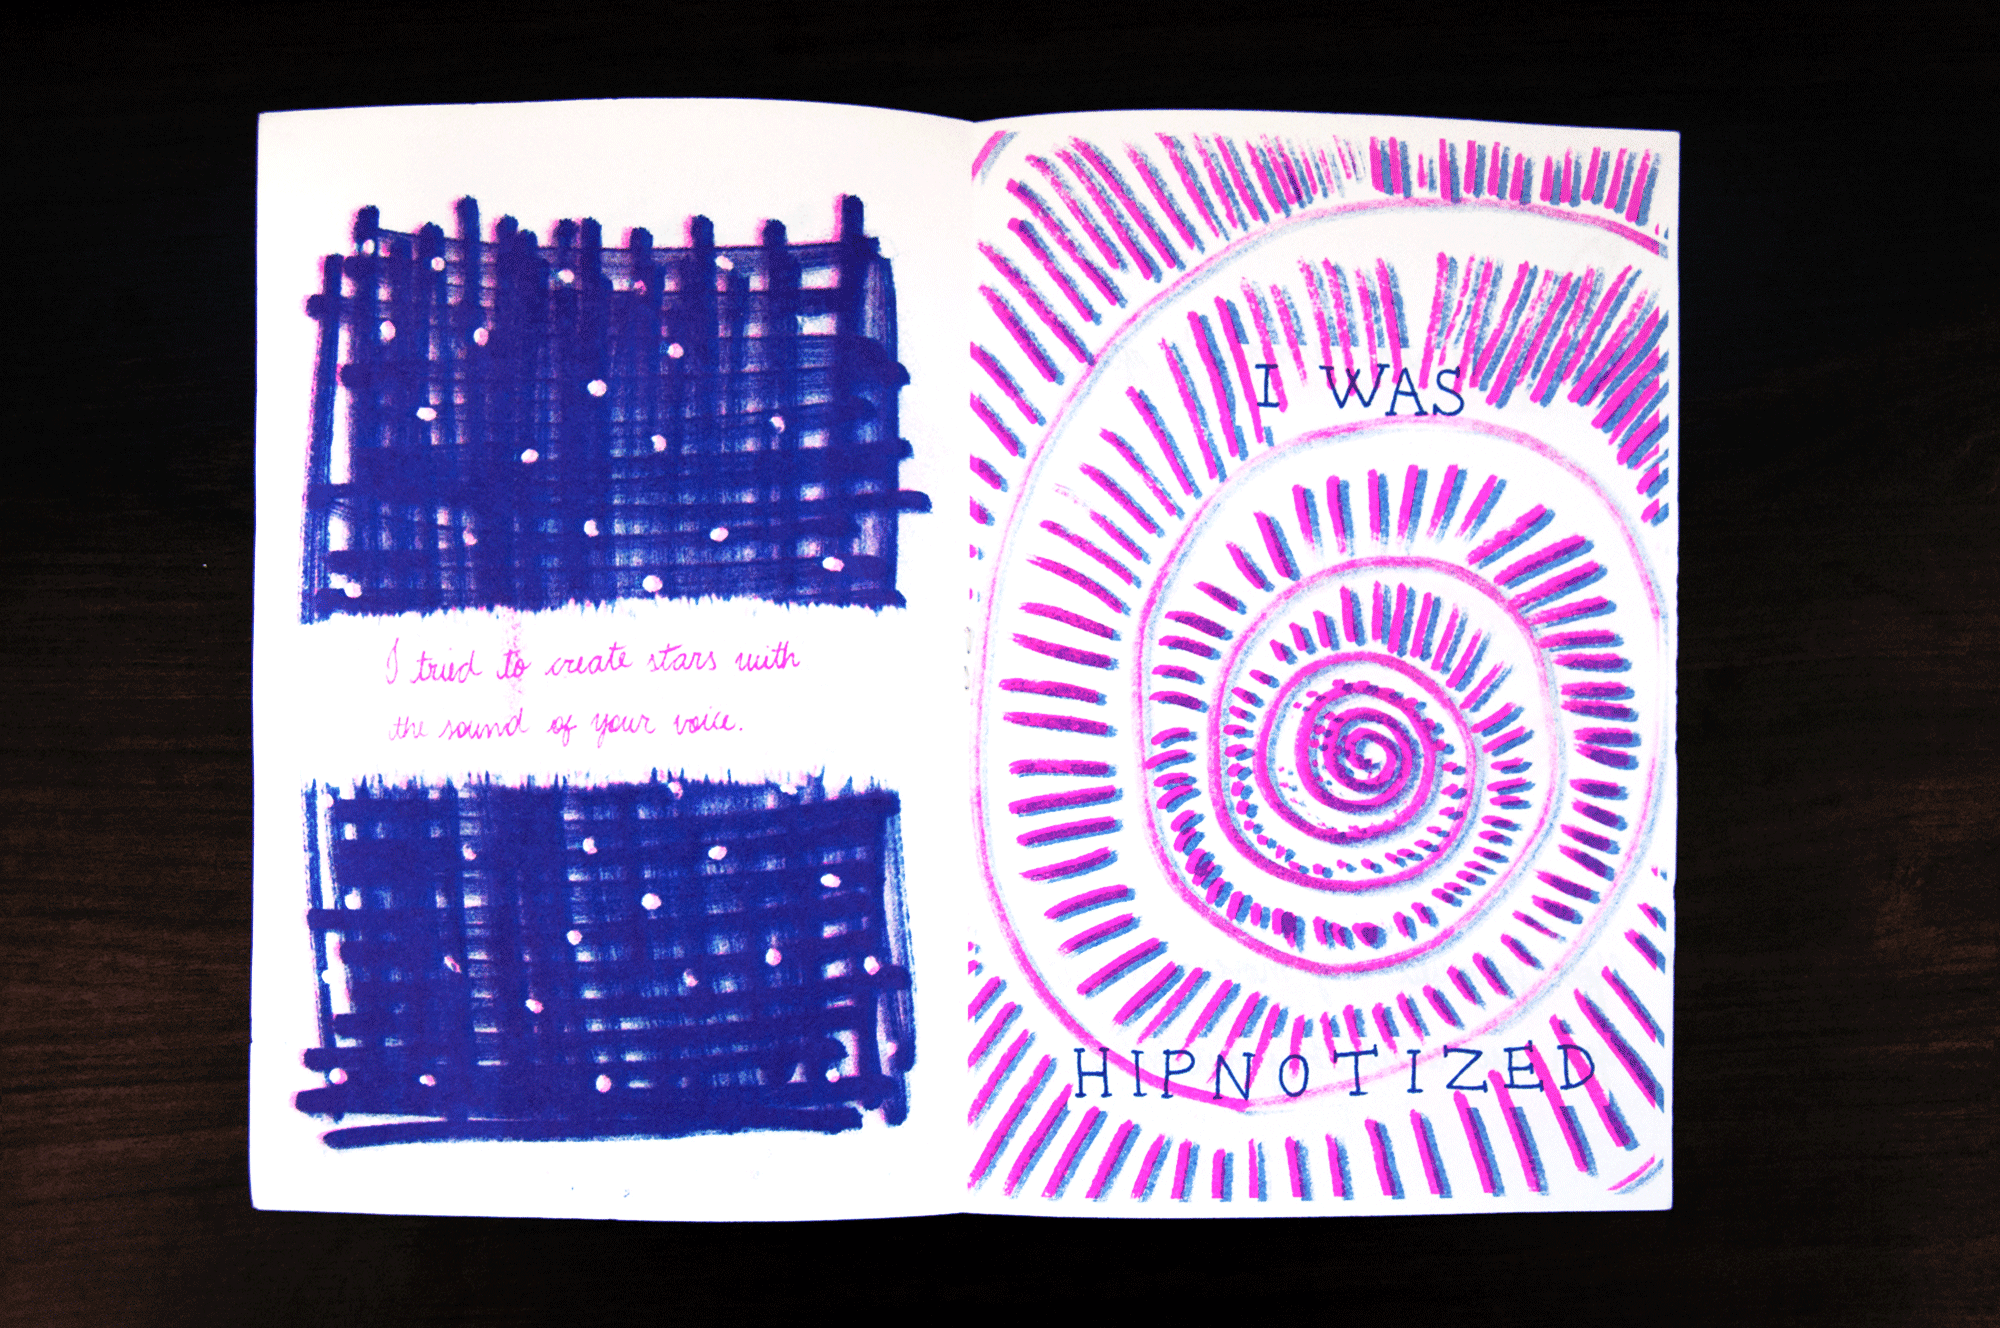 I tried to create stars with
the sound of your voice.
I WAS
HIPNOTIZED